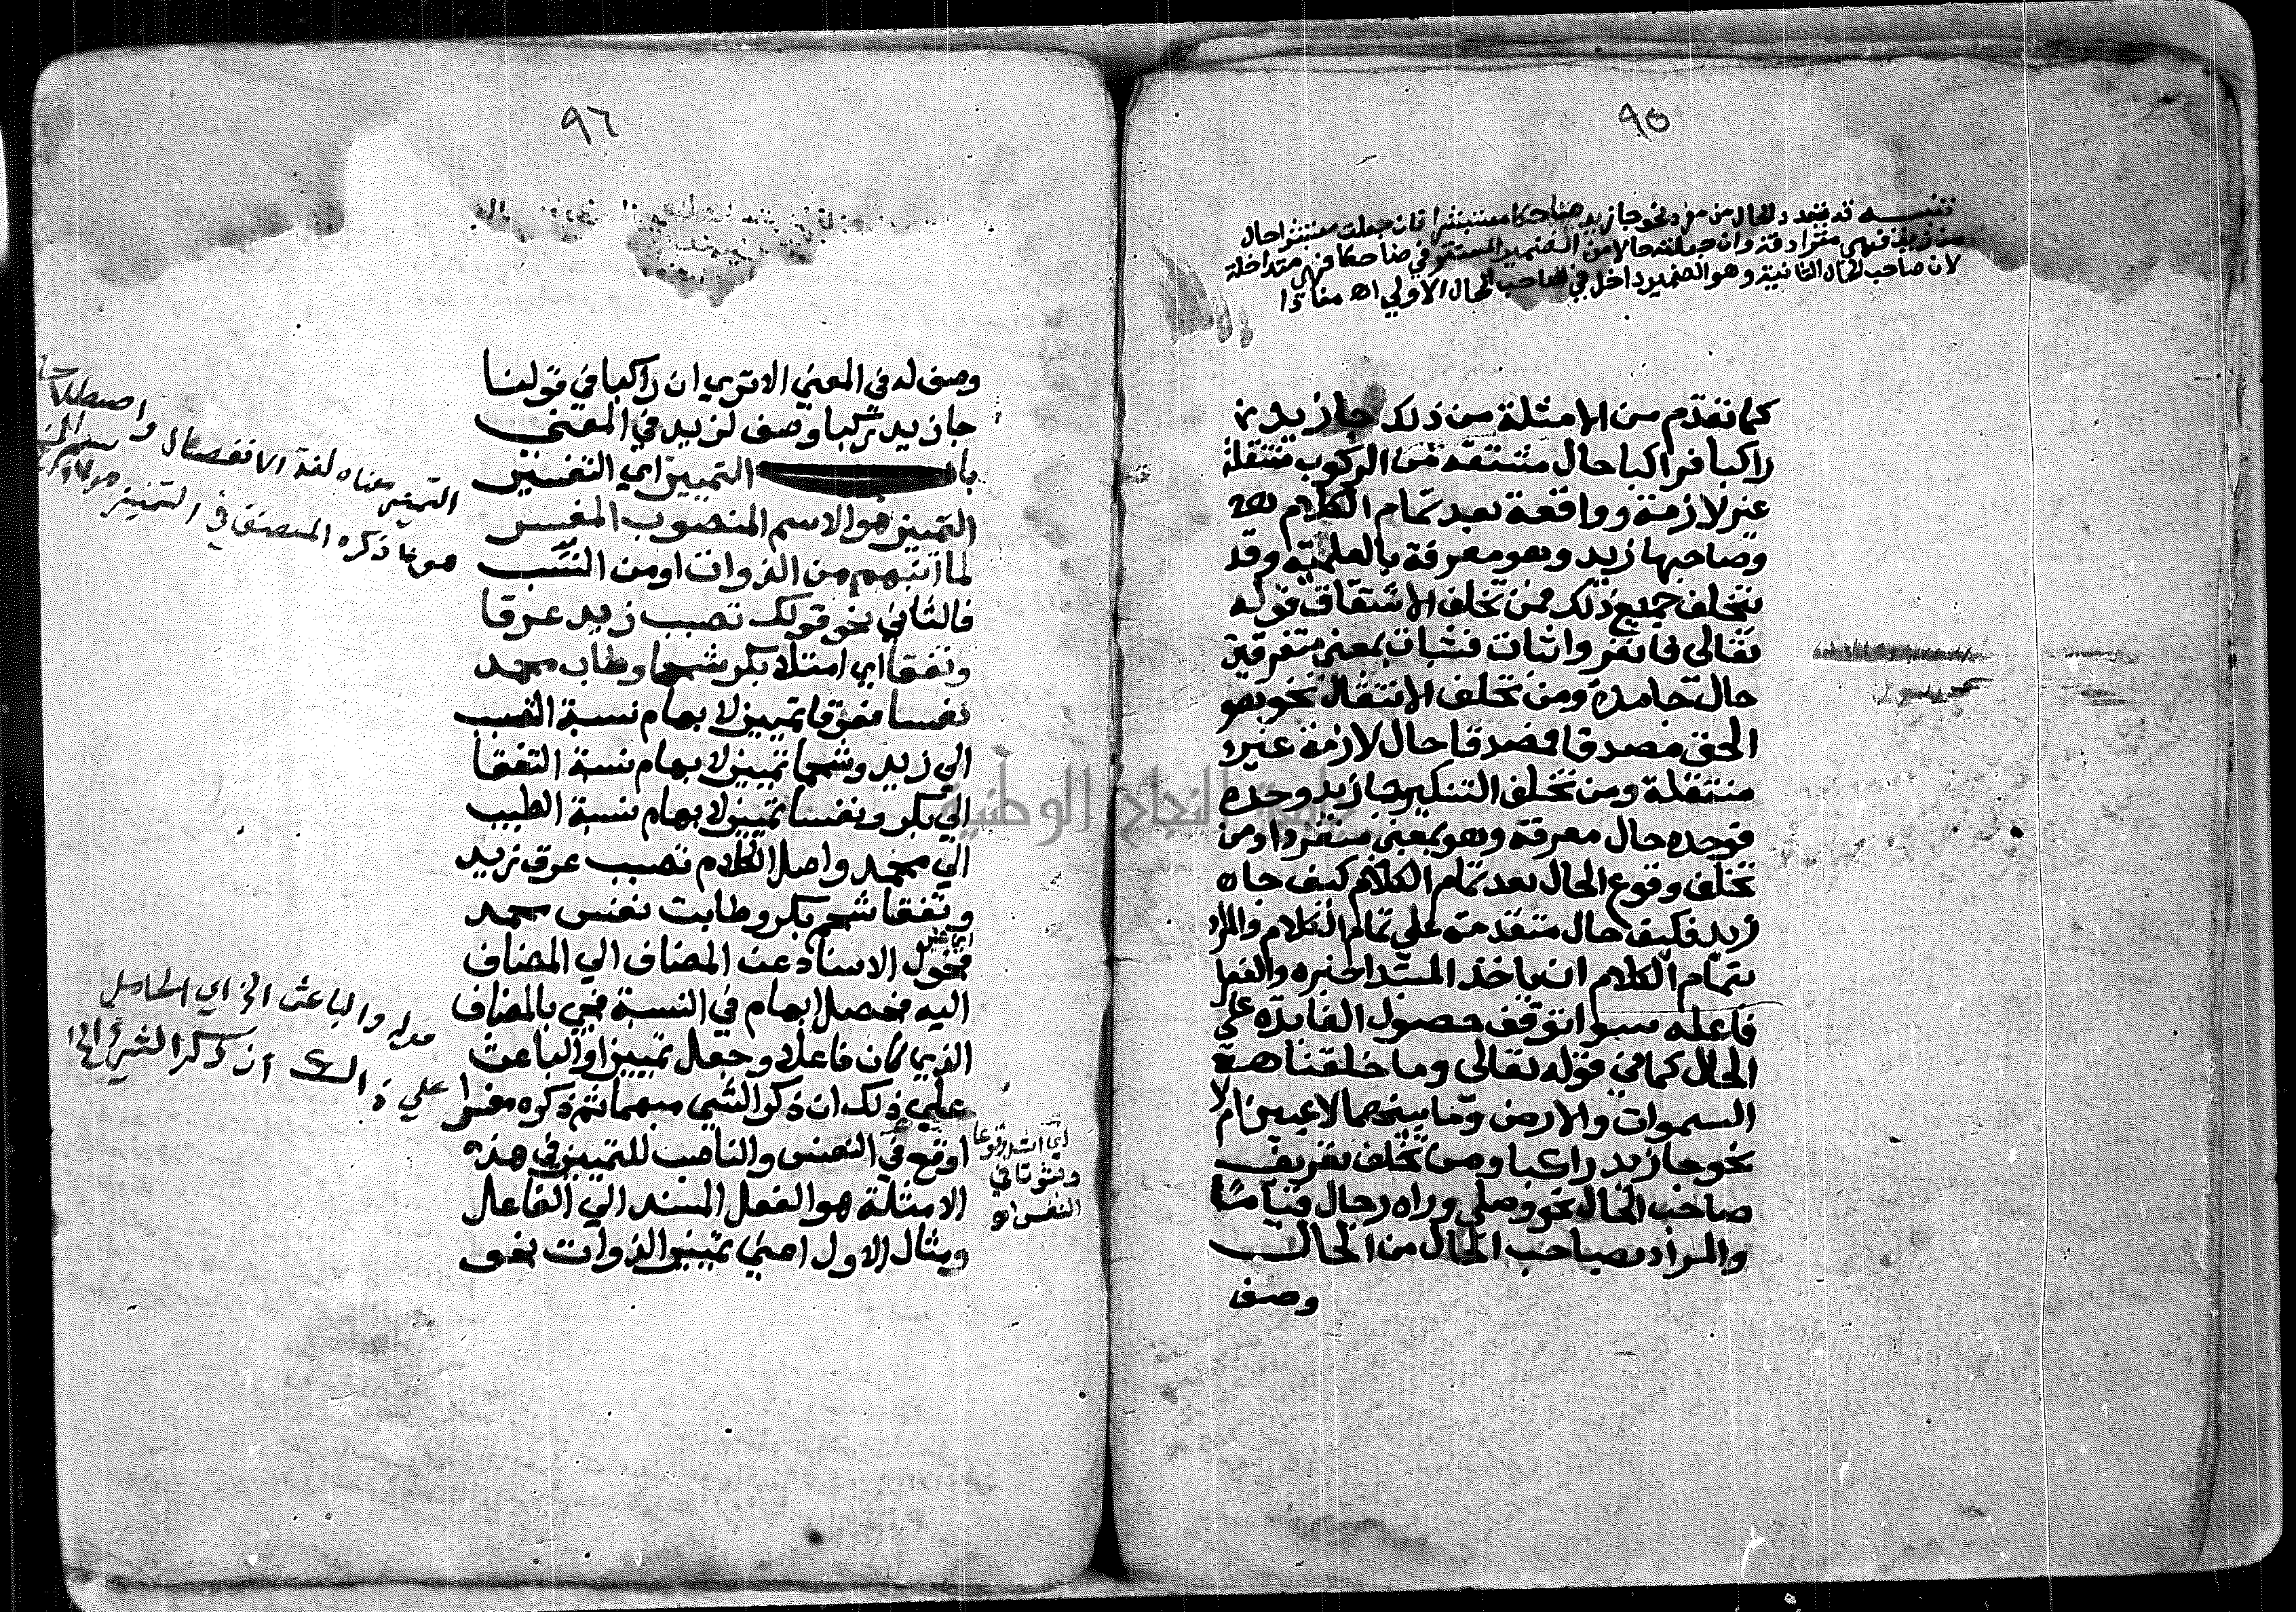 ٩٥
تنبيه قد تتعدد الحال من مفرد نحو جا زيد ضاحكا مستبشرا فان جعلت مستبشرا حال
من زيد فهي مترادفة وان جعلته حالا من الضمير المستتر في ضاحكا فهي متداخلة
لان صاحب الحال الثانية وهو الضمير داخل في صاحب الحال الاولي اه
كما تقدم من الامثلة من ذلك جا زيد
راكبا فراكبا حال مشتقه من الركوب منتقلة
غير لازمة وواقعة بعد تمام الكلام
وصاحبها زيد وهو معرفة بالعلمية وقد
يتخلف جميع ذلك فمن تخلف الاشتقاق قوله
تعالي فانفروا ثبات فثبات بمعني متفرقين
حال جامدة ومن تخلف الانتقال نحو هو
الحق مصدقا فمصدقا حال لازمة غير
منتقلة ومن تخلف التنكير جا زيد وحده
فوحده حال معرفة وهو بمعني منفردا ومن
تخلف وقوع الحال بعد تمام الكلام كيف جاه
زيد فكيف حال متقدمة علي تمام الكلام والمراد
بتمام الكلام ان ياخذ المبتدا خبره والفعل
فاعله سوا توقف حصول الفايدة علي
الحال كما في قوله تعالي وما خلقنا
السموات والارض وما بينهما لاعبين ام لا
نحو جا زيد راكبا ومن تخلف تعريف
صاحب الحال نحو وصلي وراه رجال قياما
والمراد بصاحب الحال من الحال
وصف
٩٦
وصف له في المعني الا تري ان راكبا في قولنا
جا زيد راكبا وصف لزيد في المعني
باب التمييز اي التفسير
التمييز هو الاسم المنصوب المفسر
لما انبهم من الذوات او من النسب
فالثاني نحو قولك تصبب زيد عرقا
وتفقا اي امتلا بكر شحما وطاب محمد
نفسا فعرقا تمييز لابهام نسبة التصبب
الي زيد وشحما تمييز لابهام نسبة التفقا
الي بكر ونفسا تمييز لابهام نسبة الطيب
الي محمد واصل الكلام تصبب عرق زيد
وتفقا شحم بكر وطابت نفس محمد
فحول الاسناد عن المضاف الي المضاف
اليه فحصل ابهام في النسبة فجي بالمضاف
الذي كان فاعلا وجعل تمييزا والباعث
علي ذلك ان ذكر الشي مبهما ثم ذكره مفسرا
اوقع في النفس والناصب للتمييز في هذه
الامثلة هو الفعل المسند الي الفاعل
ومثال الاول اعني تمييز الذوات نحو
التمييز معناه لغة الانفصال واصطلاحا
هو ما ذكره المصنف في التمييز
قوله والباعث الخ اي الحامل
علي ذالك ان ذكر الشي الخ
اي اشد وقوعا
وثبوتا في
النفس اه